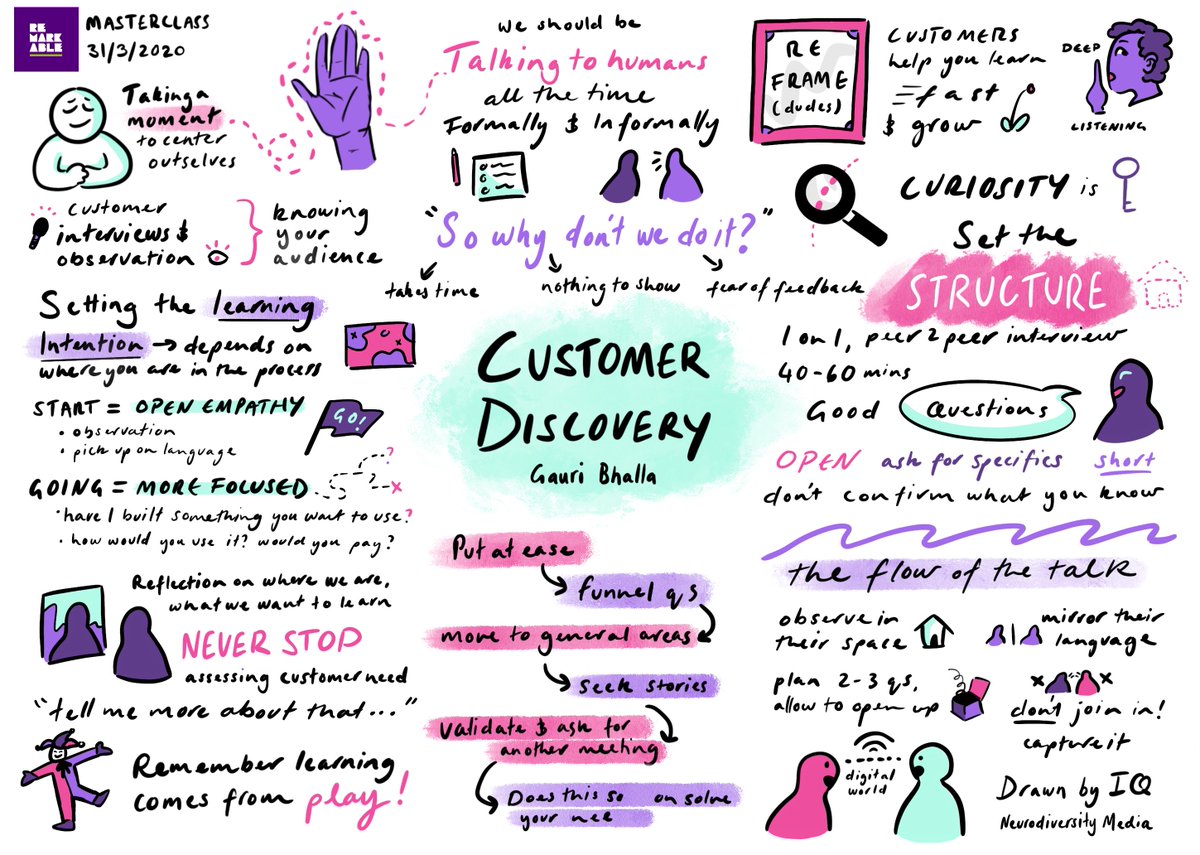 RE
MARK
ABLE
MASTERCLASS
31/3/2020
Taking a
moment
to center
outselves
customer
interviews &
observation
knowing
your
audience
Setting the learning
Intention → depends on
where you are in the process
START = OPEN EMPATHY
• observation
• pick up on language
GO!
GOING = MORE FOCUSED
?
x
• have I built something you want to use?
• how would you use it? would you pay?
Reflection on where we are,
what we want to learn
NEVER STOP
assessing customer need
"tell me more about that..."
Remember learning
comes from play!
we should be
Talking to humans
all the time
Formally & Informally
"So why don't we do it?"
takes time
nothing to show
fear of feedback
CUSTOMER
DISCOVERY
Gauri Bhalla
Put at ease
funnel qs
move to general areas
seek stories
Validate & ask for
another meeting
Does this so on solve
your nee
RE
FRAME
(dudes)
CUSTOMERS
help you learn
fast
& grow
DEEP
LISTENING
CURIOSITY is
Set the
STRUCTURE
1 on 1, peer 2 peer interview
40-60 mins
Good Questions
OPEN ask for specifics short
don't confirm what you know
the flow of the talk
observe in
their space
mirror their
language
plan 2-3 qs,
allow to open up
x x
don't join in!
capture it
digital
world
Drawn by IQ
Neurodiversity Media